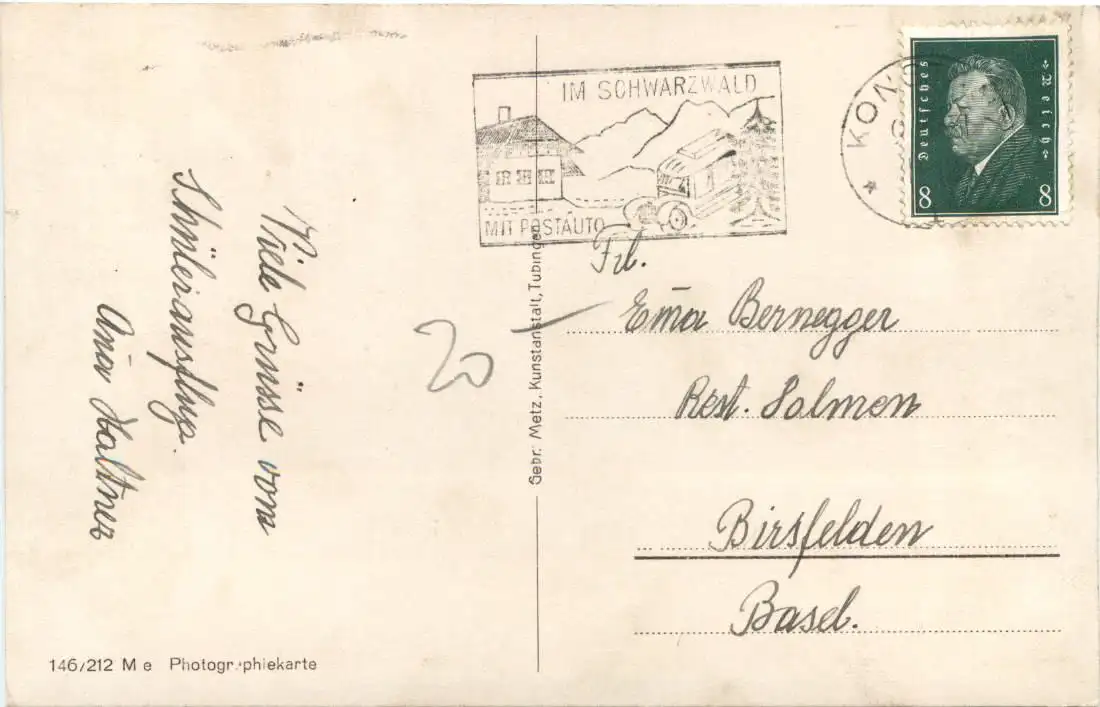 Viele Grüsse vom
Schülerausflug.
Anna Haltner
146/212 M e Photographiekarte
Gebr. Metz, Kunstanstalt, Tübingen
20
IM SCHWARZWALD
MIT POSTAUTO
Deutsches
Reich
8 8
Frl.
Em̄a Bernegger
Rest. Salmen
Birsfelden
Basel.